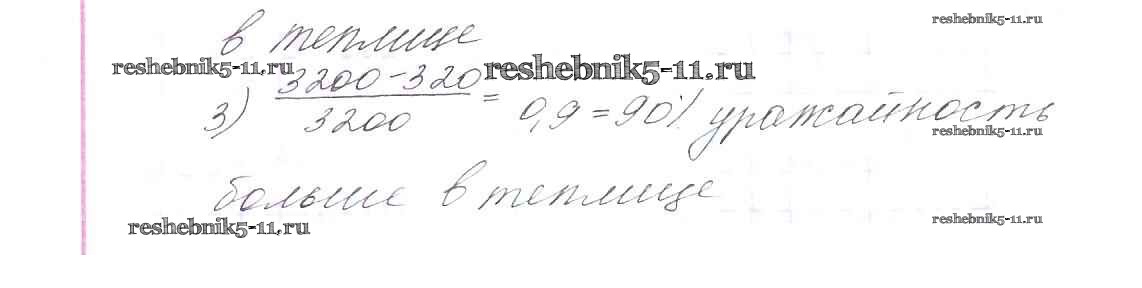 reshebnik5-11.ru
в теплице
reshebnik5-11.ru
reshebnik5-11.ru
3) (3200 - 320)/3200 = 0,9 = 90% урожайность
reshebnik5-11.ru
больше в теплице
reshebnik5-11.ru
reshebnik5-11.ru